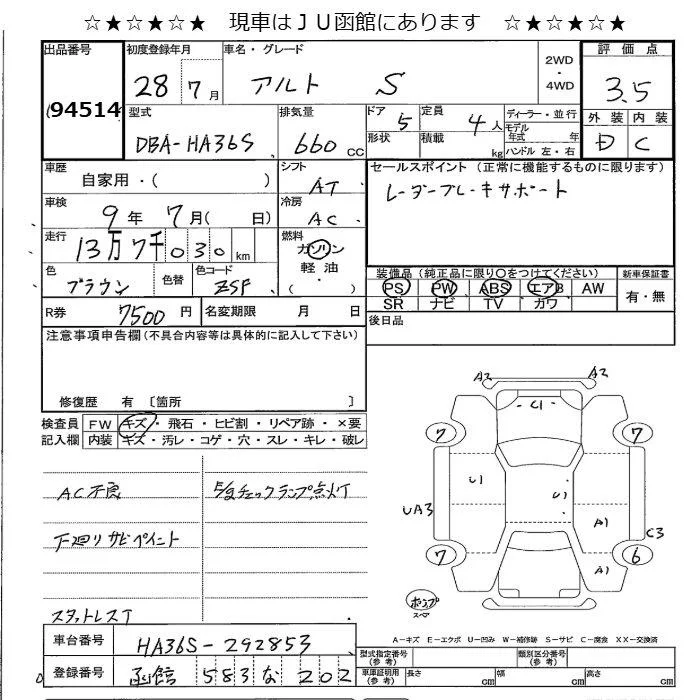 ☆★☆★☆★ 現車はＪＵ函館にあります ☆★☆★☆★
出品番号 94514
初度登録年月 28 7月
車名・グレード アルト S
2WD・4WD
評価点 3.5
型式 DBA-HA36S
排気量 660cc
ドア 5
形状
定員 4人
積載 kg
ディーラー・並行
モデル年式 年
ハンドル 左・右
外装 D
内装 C
車歴 自家用・( )
シフト AT
セールスポイント（正常に機能するものに限ります）
レーダーブレーキサポート
車検 9年 7月( 日)
冷房 AC
走行 13万7千030km
燃料 ガソリン
軽油
・( )
色 ブラウン
色替
色コード ZSF
装備品（純正品に限り〇をつけてください）
PS PW ABS エアB AW
SR ナビ TV カワ
新車保証書
有・無
R券 7500円
名変期限 月 日
後日品
注意事項申告欄(不具合内容等は具体的に記入して下さい)
修復歴 有 〔箇所 〕
検査員記入欄
FW キズ・飛石・ヒビ割・リペア跡・×要
内装 キズ・汚レ・コゲ・穴・スレ・キレ・破レ
AC不良
下廻りサビペイント
スタットレスT
チェックランプ点灯
A2 A2
C1
7 7
U1 U1
UA3
A1
C3
7 6
A1
ポンプ
スペア
A－キズ E－エクボ U－凹み W－補修跡 S－サビ C－腐食 XX－交換済
車台番号 HA36S-292853
登録番号 函館 583 な 202
型式指定番号（参考）
類別区分番号（参考）
車庫証明用（参考） 長さ cm 幅 cm 高さ cm